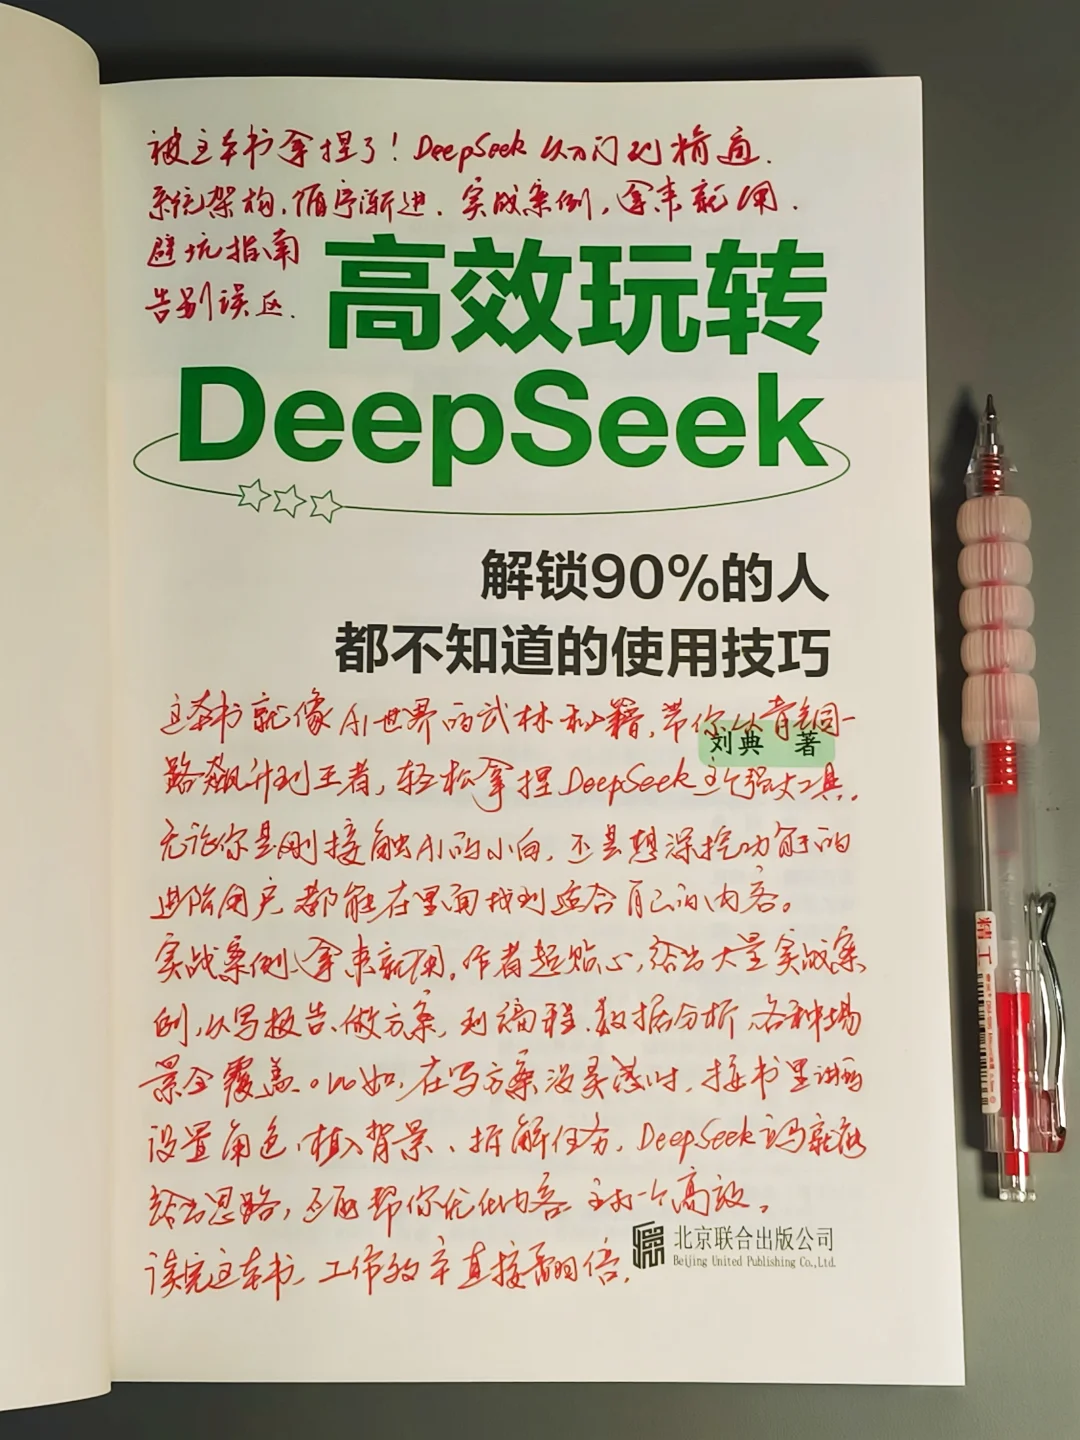 被这本书拿捏了！DeepSeek从入门到精通.
系统架构,循序渐进.实战案例,拿来就用.
避坑指南
告别误区.
高效玩转
DeepSeek
解锁90%的人
都不知道的使用技巧
这本书就像AI世界的武林秘籍,带你从青铜一
刘典 著
路飙升到王者,轻松拿捏DeepSeek这个强大工具.
无论你是刚接触AI的小白,还是想深挖功能的
进阶用户,都能在里面找到适合自己的内容。
实战案例、拿来就用.作者超贴心,给出大量实战案
例,从写报告、做方案,到编程、数据分析,各种场
景全覆盖。比如,在写方案没灵感时,按书里讲的
设置角色、植入背景、拆解任务,DeepSeek立马就能
给出思路,还能帮你优化内容,主打一个高效。
读完这本书,工作效率直接翻倍.
北京联合出版公司
Beijing United Publishing Co.,Ltd.
精工